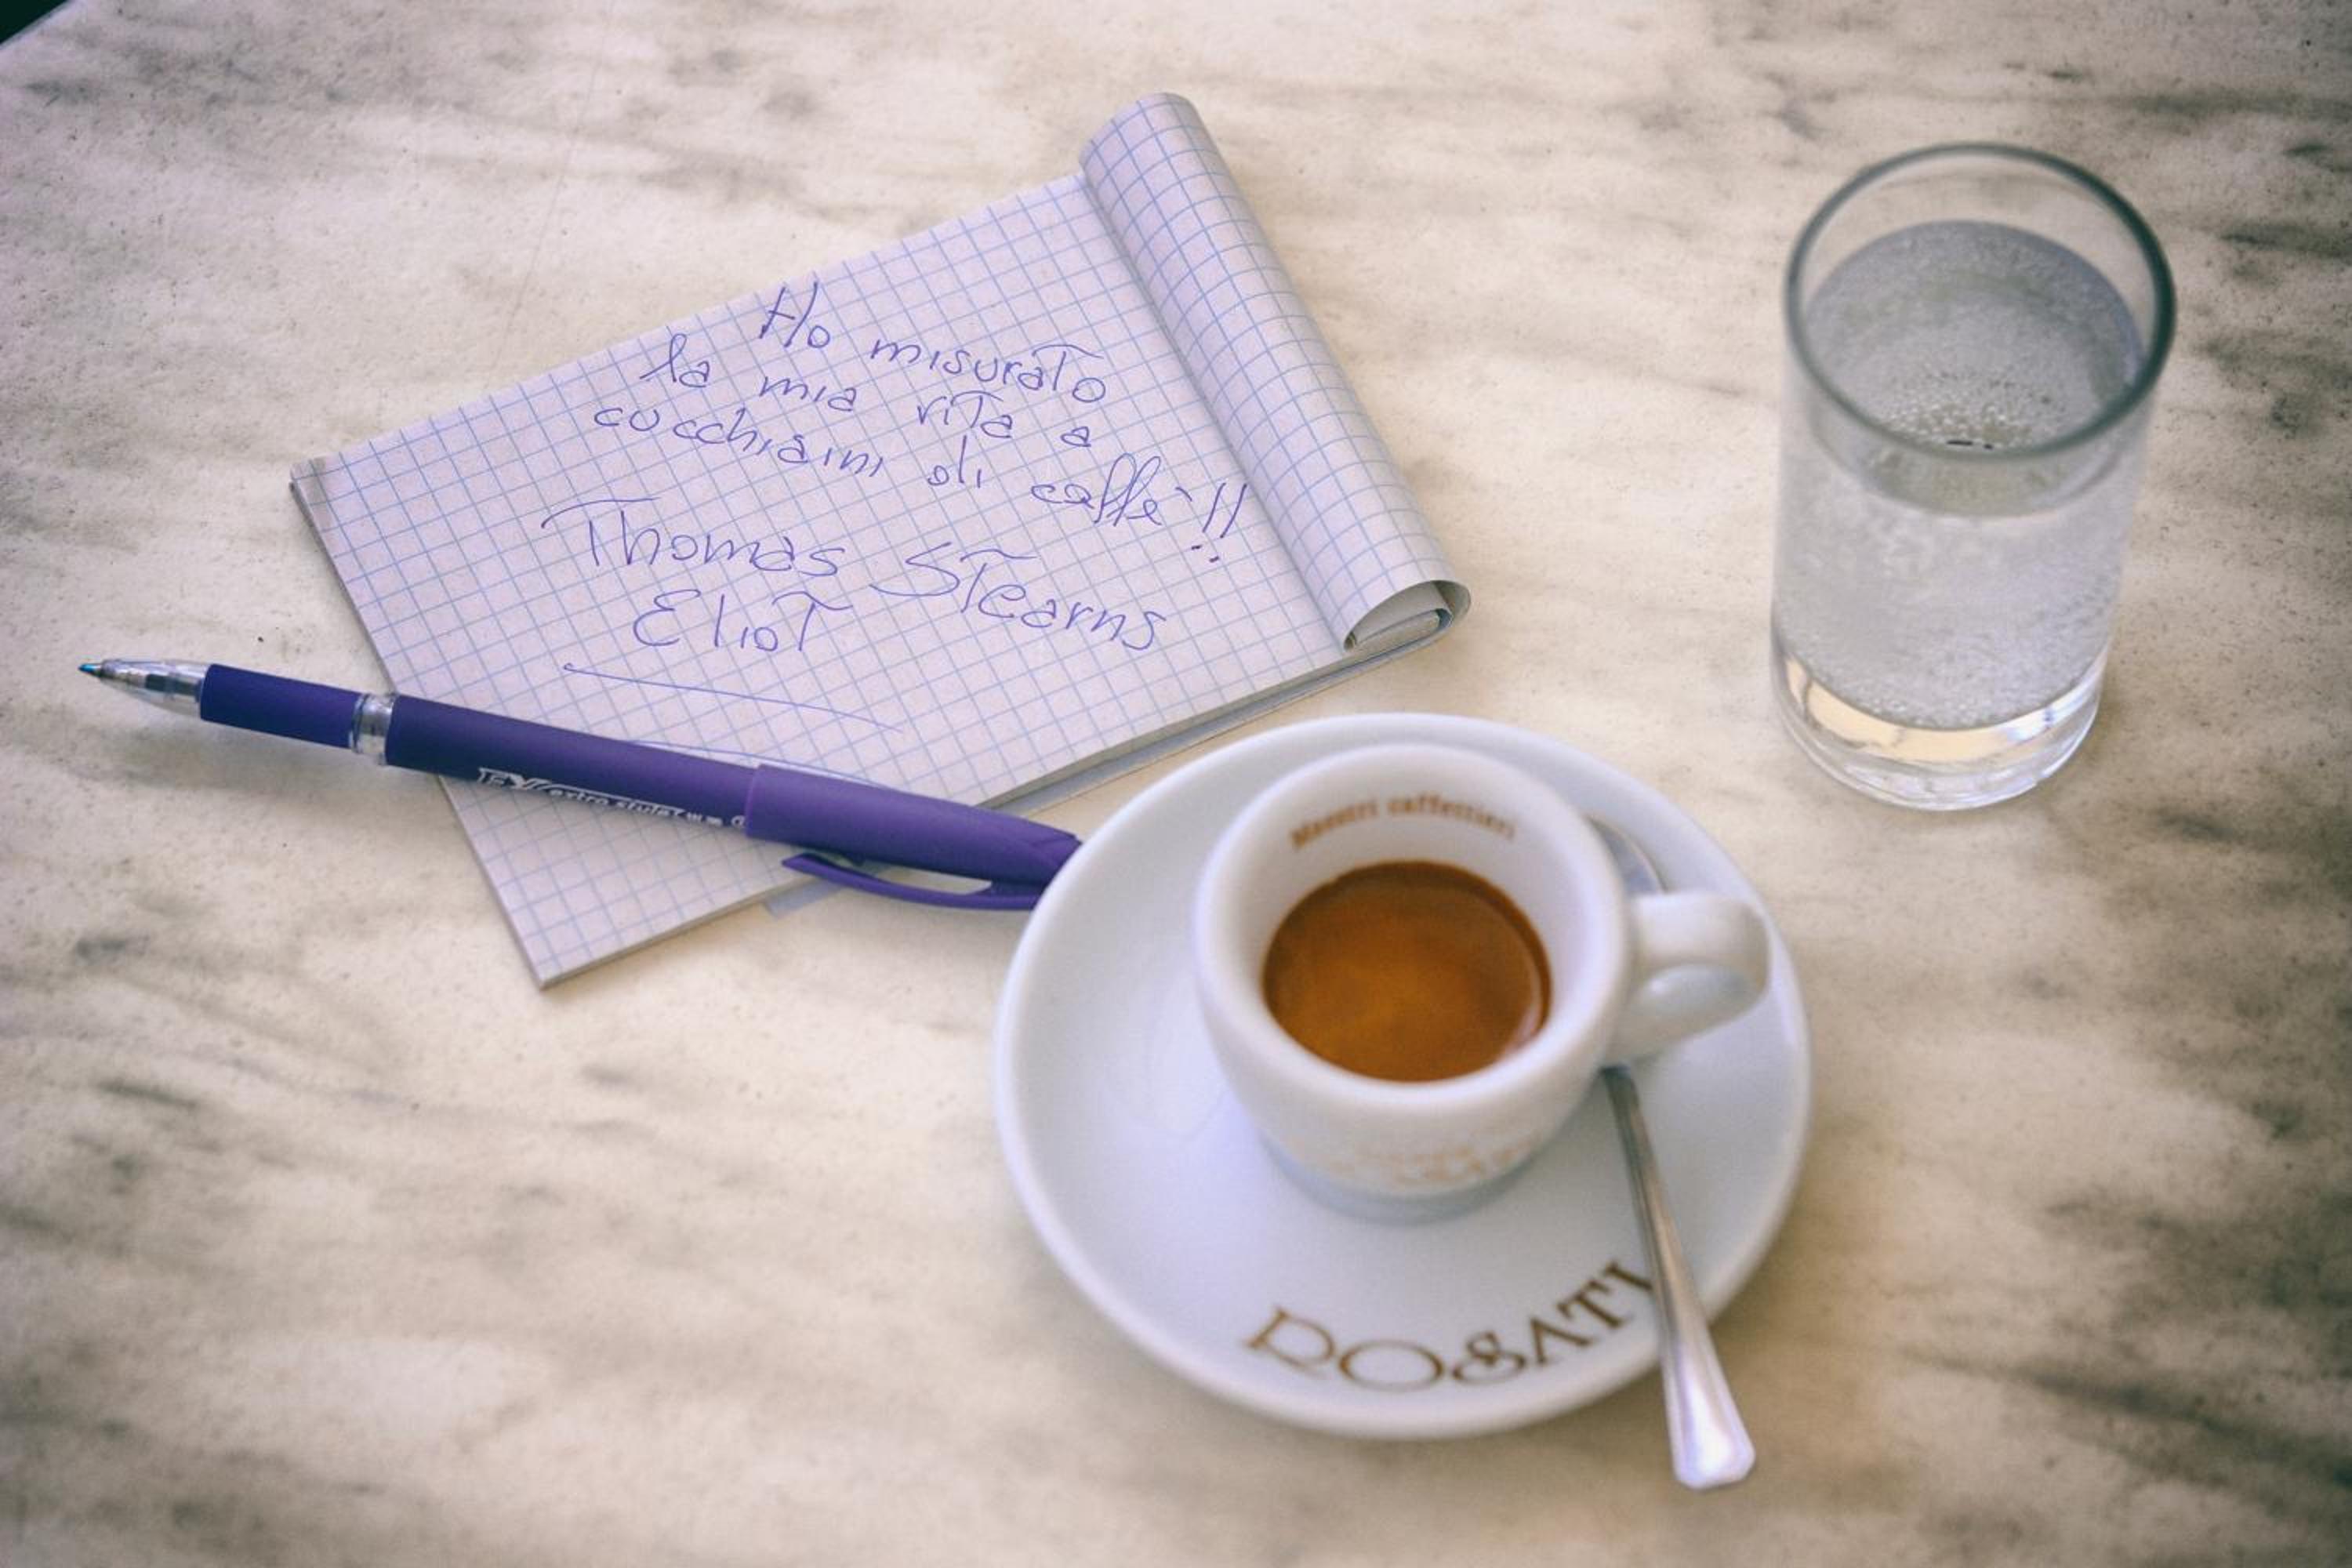 Ho misurato
la mia vita a
cucchiaini di caffè!!
Thomas Stearns
Eliot
extra style
Maestri caffettieri
ROSATI